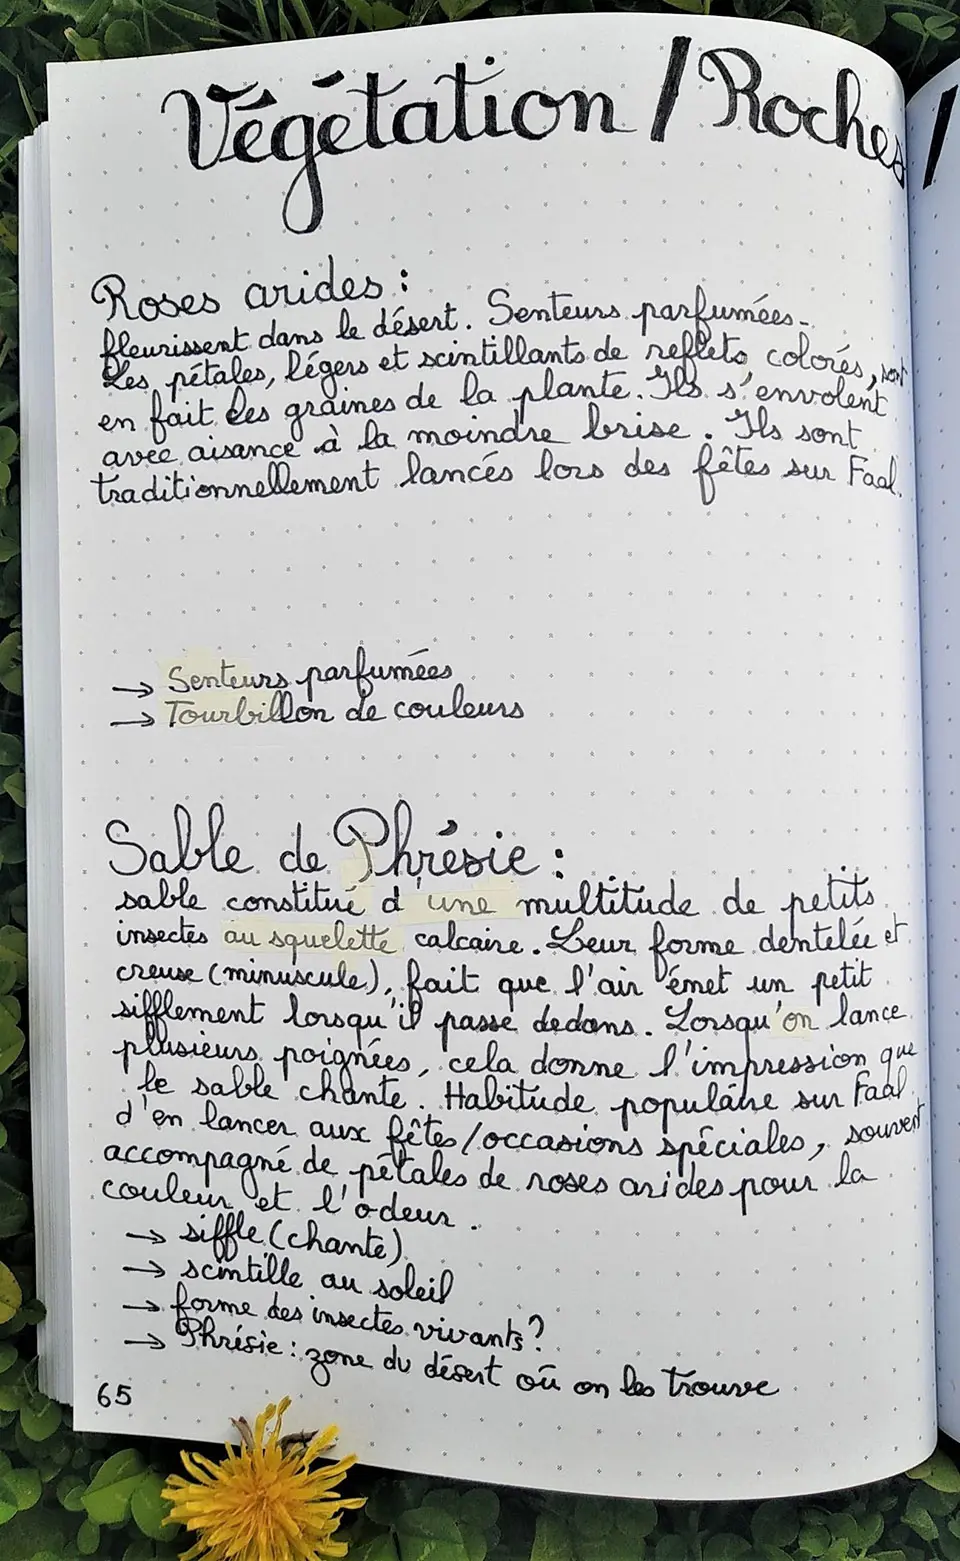 Végétation / Roches
Roses arides :
fleurissent dans le désert. Senteurs parfumées.
Les pétales, légers et scintillants de reflets colorés, sont
en fait les graines de la plante. Ils s'envolent
avec aisance à la moindre brise. Ils sont
traditionnellement lancés lors des fêtes sur Faal.
→ Senteurs parfumées
→ Tourbillon de couleurs
Sable de Phrésie :
sable constitué d'une multitude de petits
insectes au squelette calcaire. Leur forme dentelée et
creuse (minuscule), fait que l'air émet un petit
sifflement lorsqu'il passe dedans. Lorsqu'on lance
plusieurs poignées, cela donne l'impression que
le sable chante. Habitude populaire sur Faal
d'en lancer aux fêtes/occasions spéciales, souvent
accompagné de pétales de roses arides pour la
couleur et l'odeur.
→ siffle (chante)
→ scintille au soleil
→ forme des insectes vivants ?
→ Phrésie : zone du désert où on les trouve
65